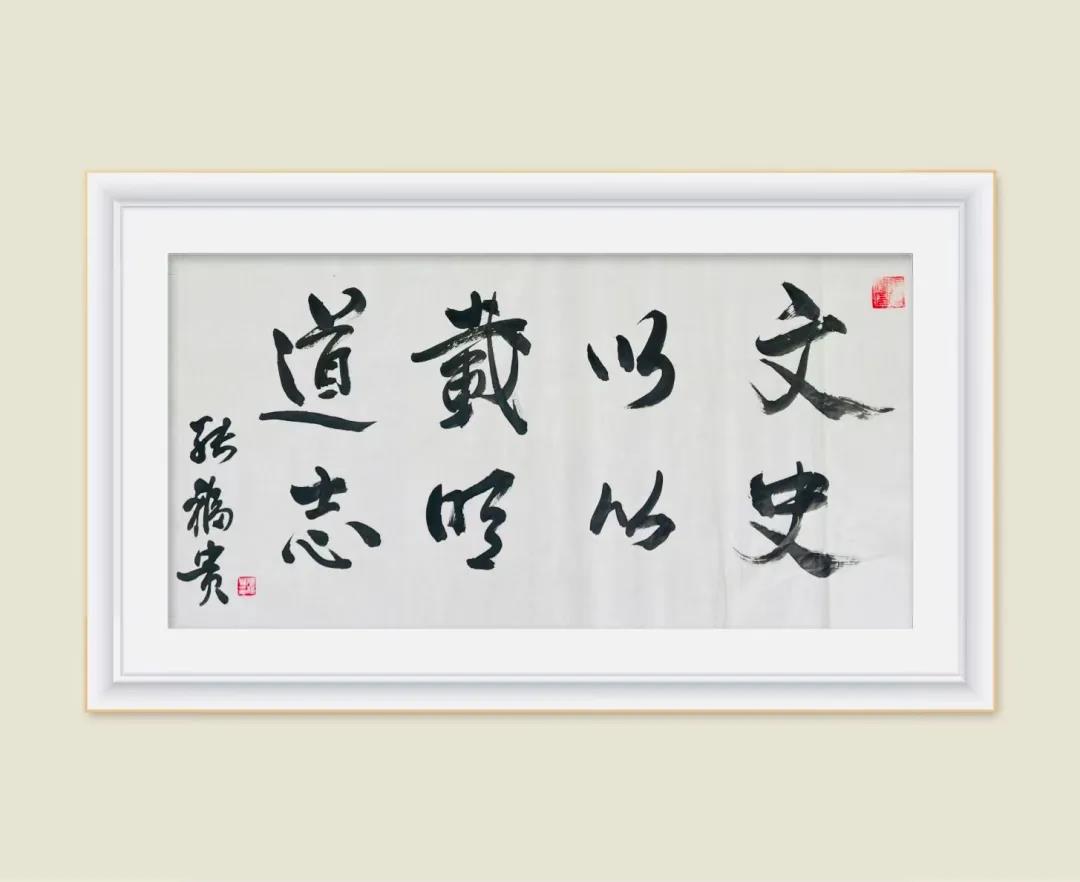 文以載道
史以明志
张福贵